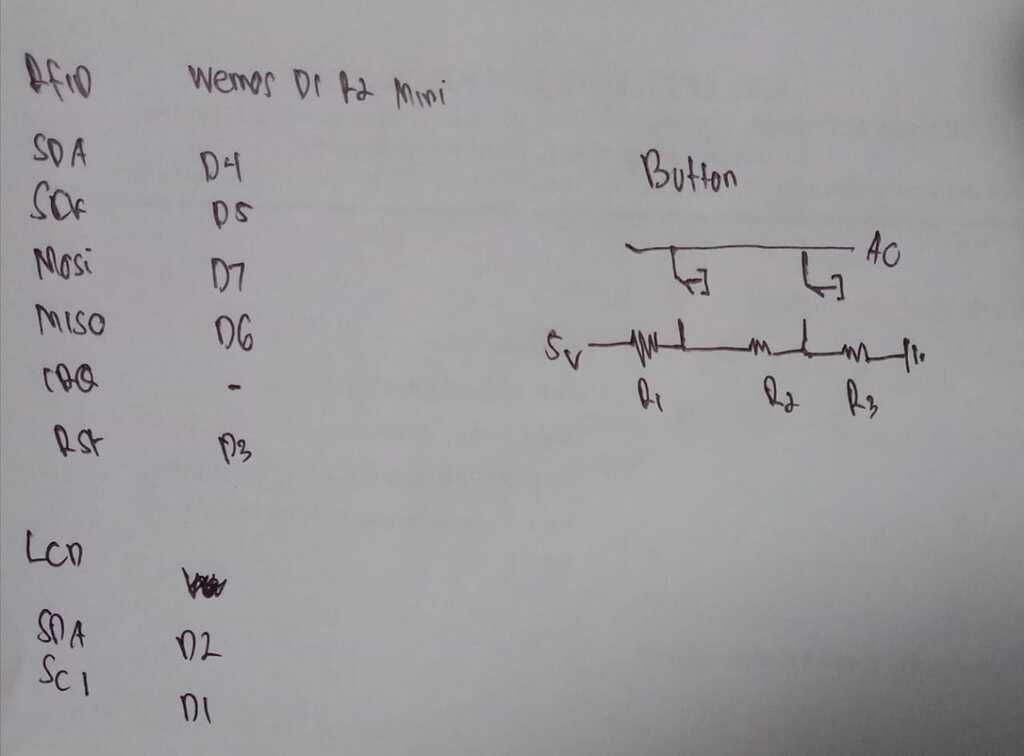 RFID Wemos D1 R2 Mini
SDA D4
SCK D5
Mosi D7
MISO D6
IRQ -
RSt D3
LCD
SDA D2
SCl D1
Button
A0
5v
R1 R2 R3